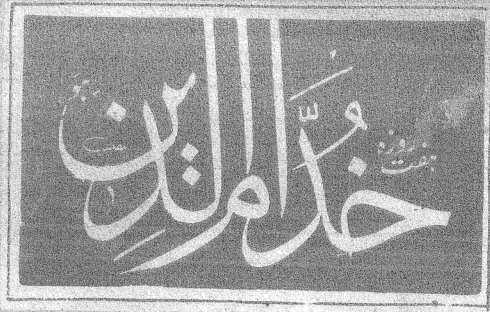 ہفت روزہ
خدّام الدین